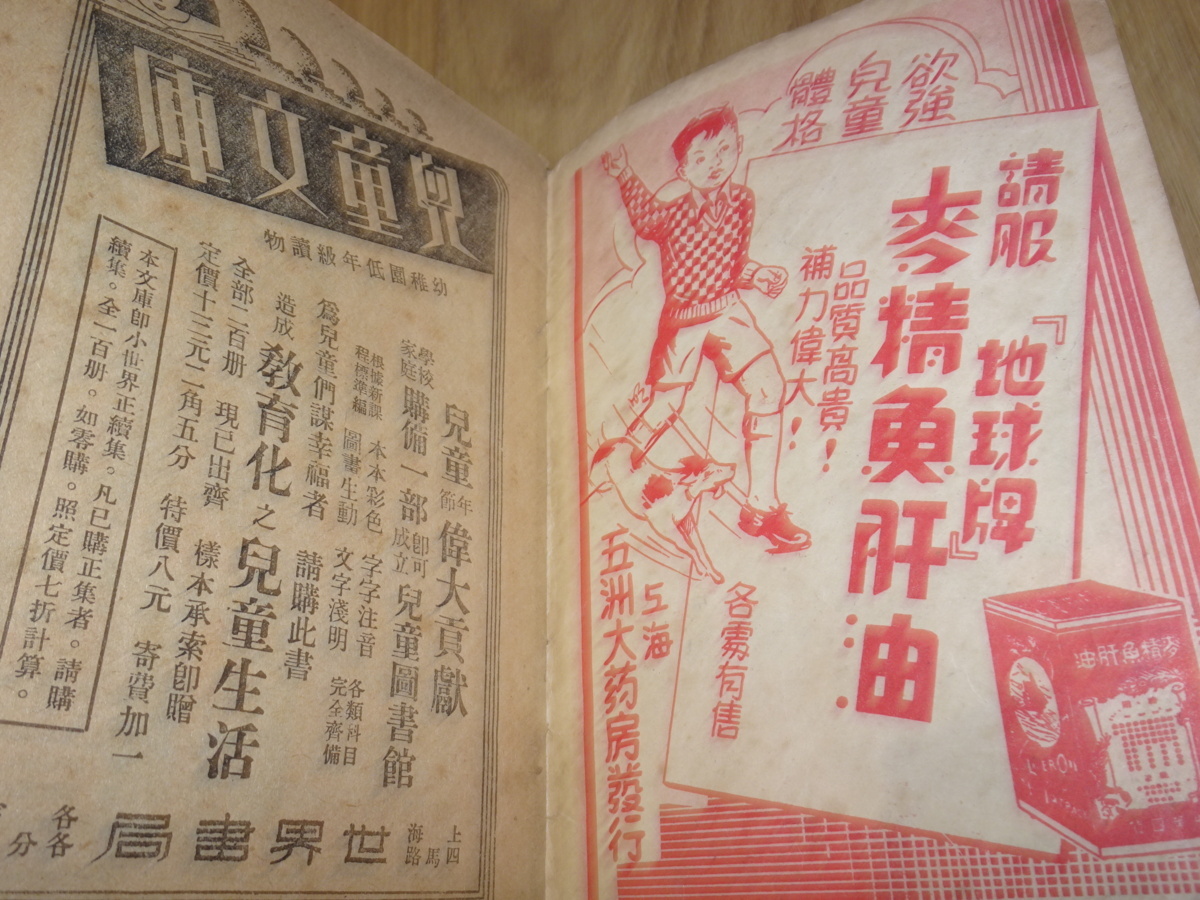 欲強
兒童
體格
請服
『地球牌』
麥精魚肝油
品質高貴！
補力偉大！
各處有售
上海
五洲大药房發行
麥精魚肝油
兒童文庫
幼稚園低年級讀物
兒童年節偉大貢獻
學校家庭購備一部即可成立兒童圖書館
根據新課程標準編 本本彩色 圖畫生動 字字注音 文字淺明 各類科目完全齊備
爲兒童們謀幸福者 請購此書
造成教育化之兒童生活
全部二百册 現已出齊 樣本承索即贈
定價十三元二角五分 特價八元 寄費加一
本文庫即小世界正續集。凡已購正集者。請購
續集。全一百册。如零購。照定價七折計算。
上海四馬路
世界書局
各各
分